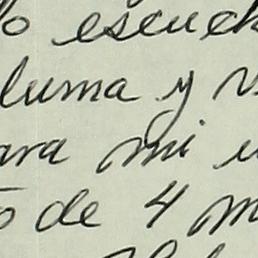 escuch
luma y
ara mi
de 4 m